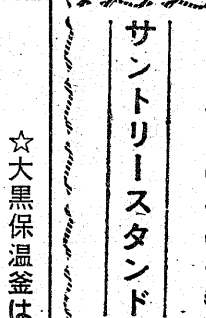 サントリースタンド
☆大黒保温釜は